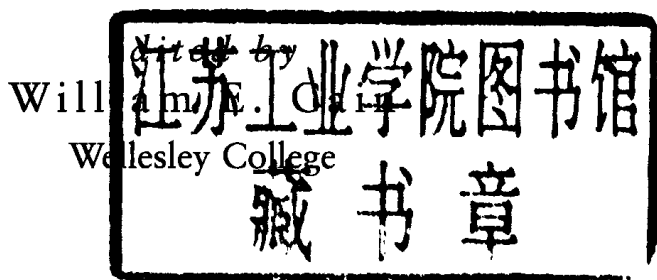 edited by
William E. Cain
Wellesley College
江苏工业学院图书馆
藏书章